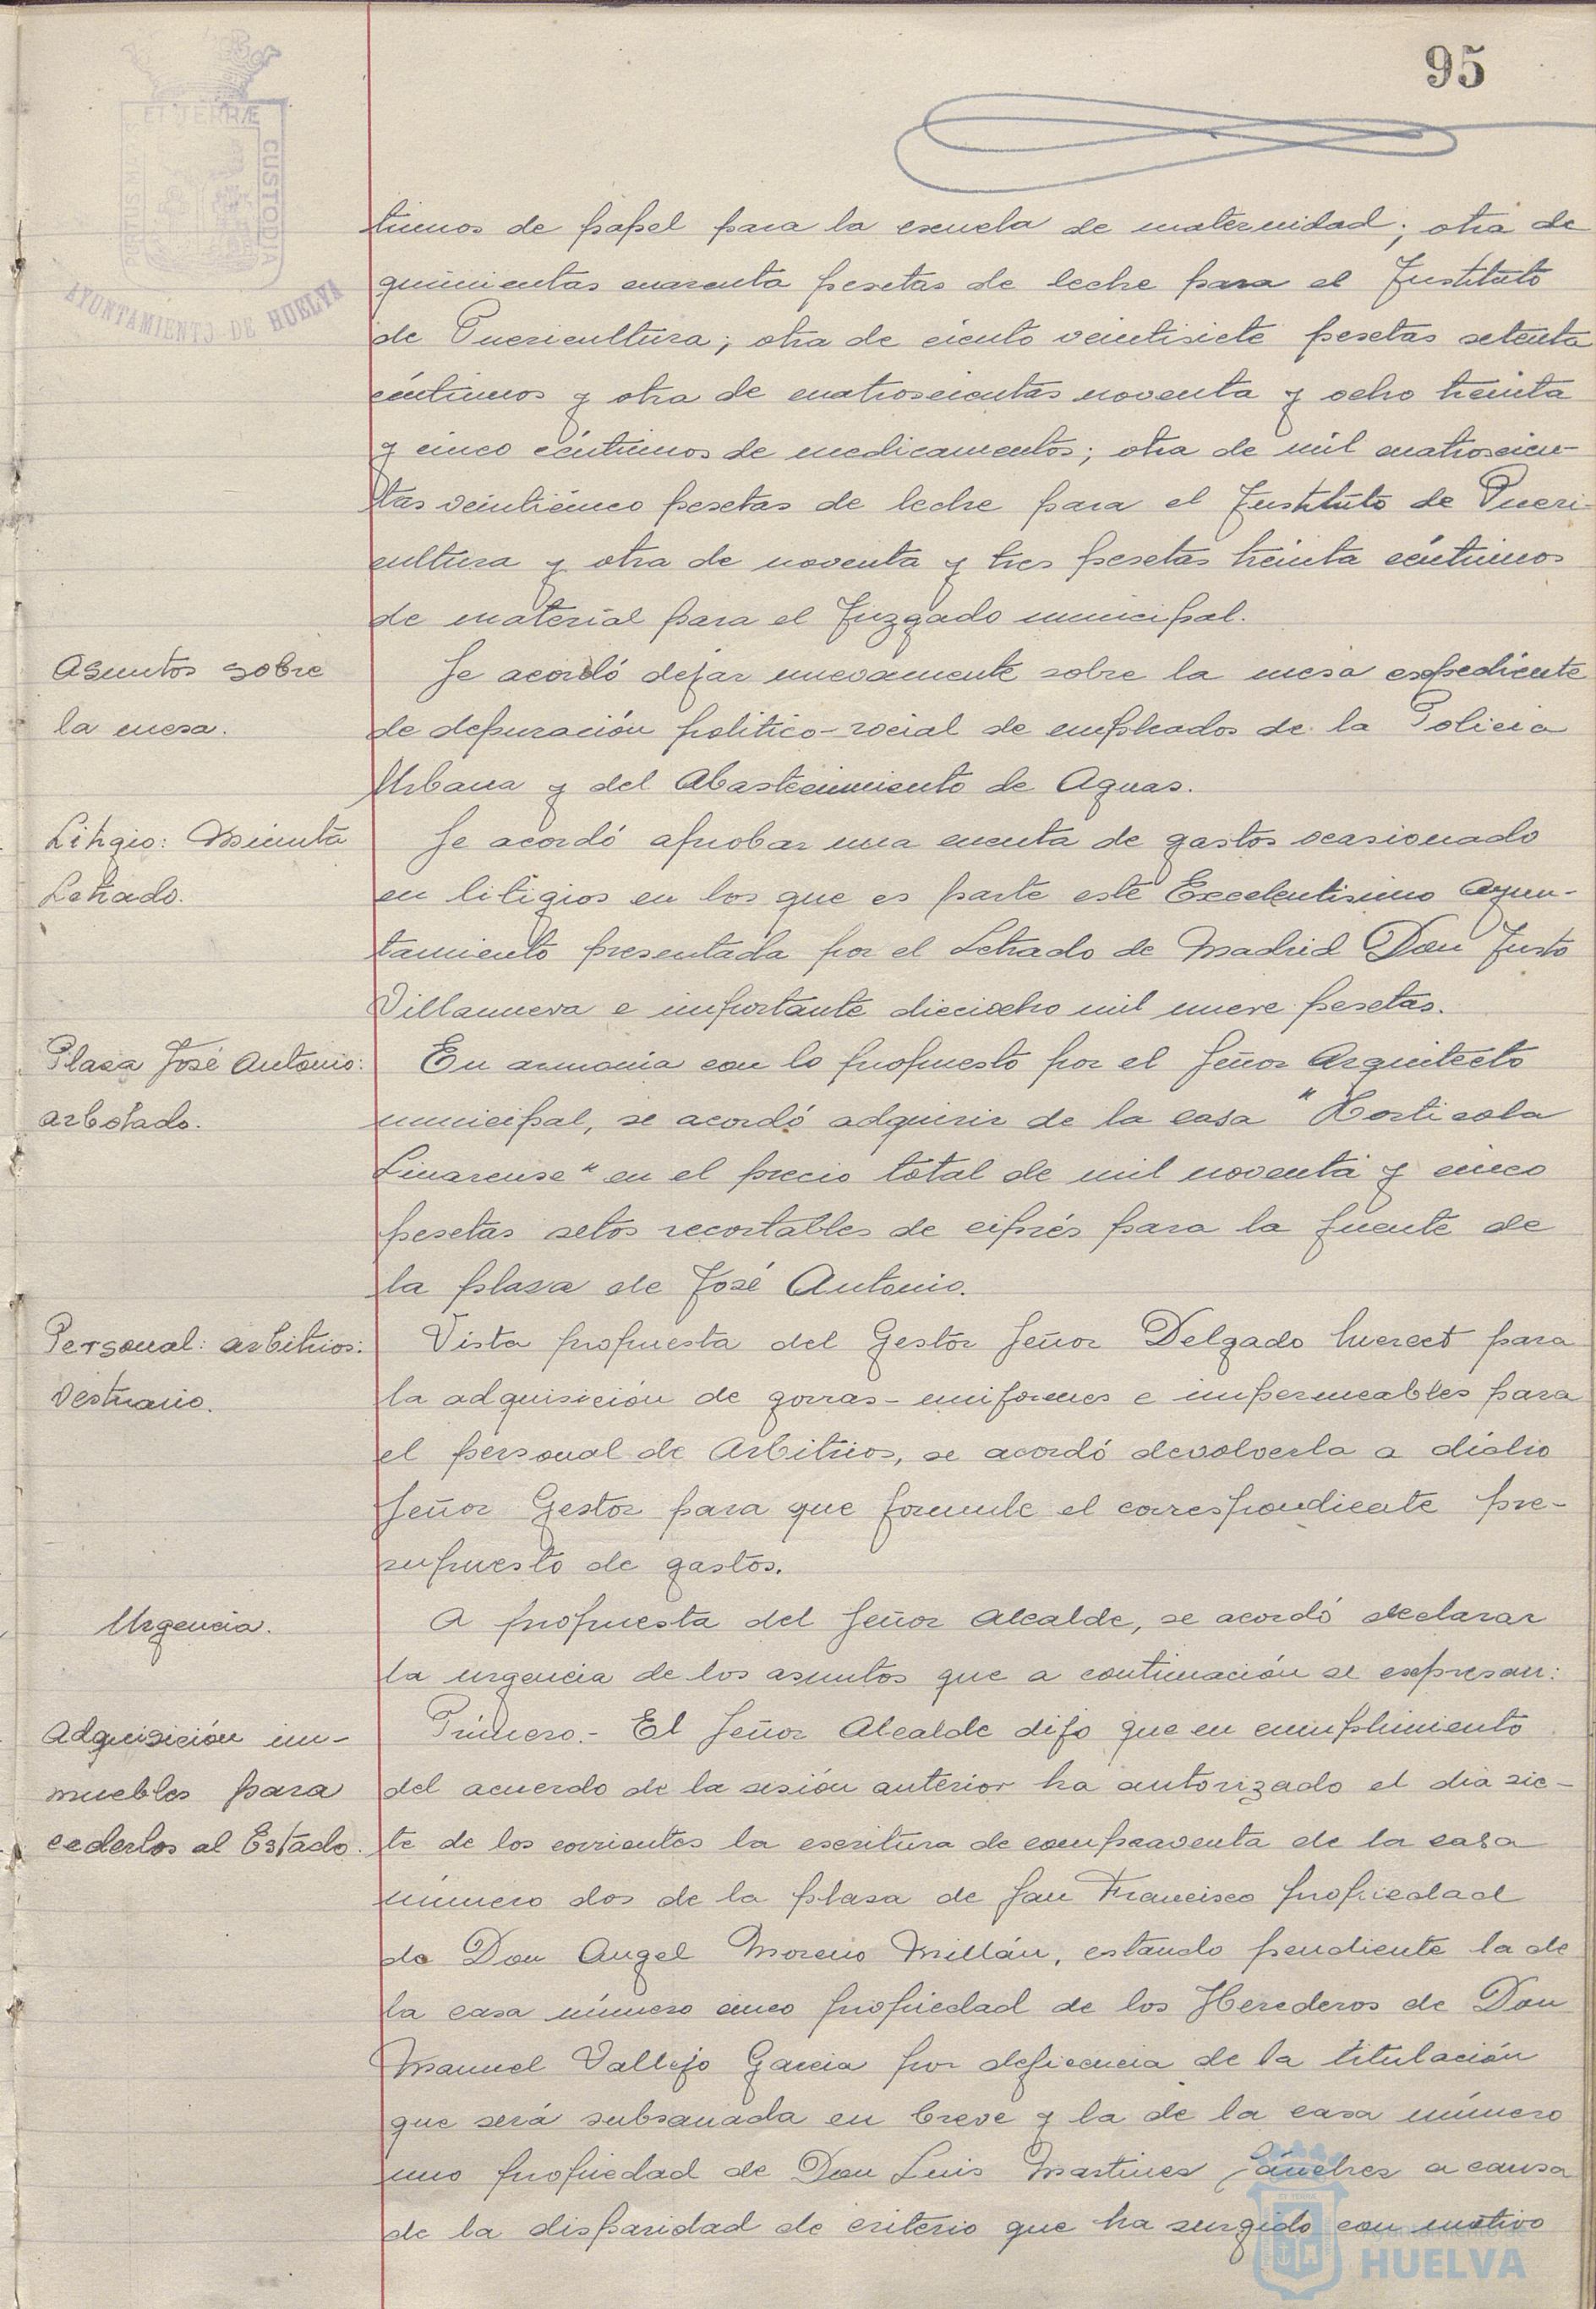 95
ET TERRÆ
CUSTODIA
AYUNTAMIENTO DE HUELVA
timos de papel para la escuela de maternidad; otra de
quinientas cuarenta pesetas de leche para el Instituto
de Puericultura; otra de ciento veintisiete pesetas setenta
céntimos y otra de cuatroscientas noventa y ocho treinta
y cinco céntimos de medicamentos; otra de mil cuatroscien-
tas veinticinco pesetas de leche para el Instituto de Pueri-
cultura y otra de noventa y tres pesetas treinta céntimos
de material para el Juzgado municipal.
Asuntos sobre
la mesa.
Se acordó dejar nuevamente sobre la mesa expediente
de depuración politico-social de empleados de la Policia
Urbana y del Abastecimiento de Aguas.
Litigio: Minuta
Letrado.
Se acordó aprobar una cuenta de gastos ocasionado
en litigios en los que es parte este Excelentisimo Ayun-
tamiento presentada por el Letrado de Madrid Don Justo
Villanueva e importante dieciocho mil nueve pesetas.
Plaza José Antonio:
arbolado.
En armonia con lo propuesto por el Señor Arquitecto
municipal, se acordó adquirir de la casa "Horticola
Linarense" en el precio total de mil noventa y cinco
pesetas setos recortables de ciprés para la fuente de
la plaza de José Antonio.
Personal: arbitrios:
Vestuario.
Vista propuesta del Gestor Señor Delgado para
la adquisición de gorras-uniformes e impermeables para
el personal de Arbitrios, se acordó devolverla a dicho
Señor Gestor para que formule el correspondiente pre-
supuesto de gastos.
Urgencia.
A propuesta del Señor Alcalde, se acordó declarar
la urgencia de los asuntos que a continuación se expresan:
Adquisición in-
muebles para
cederlos al Estado.
Primero.- El Señor Alcalde dijo que en cumplimiento
del acuerdo de la sesión anterior ha autorizado el dia sie-
te de los corrientes la escritura de compraventa de la casa
número dos de la plaza de San Francisco propiedad
de Don Angel Moreno Millán, estando pendiente la de
la casa número cinco propiedad de los Herederos de Don
Manuel Vallejo Garcia por deficiencia de la titulación
que será subsanada en breve y la de la casa número
uno propiedad de Don Luis Martinez Sánchez a causa
de la disparidad de criterio que ha surgido con motivo
HUELVA